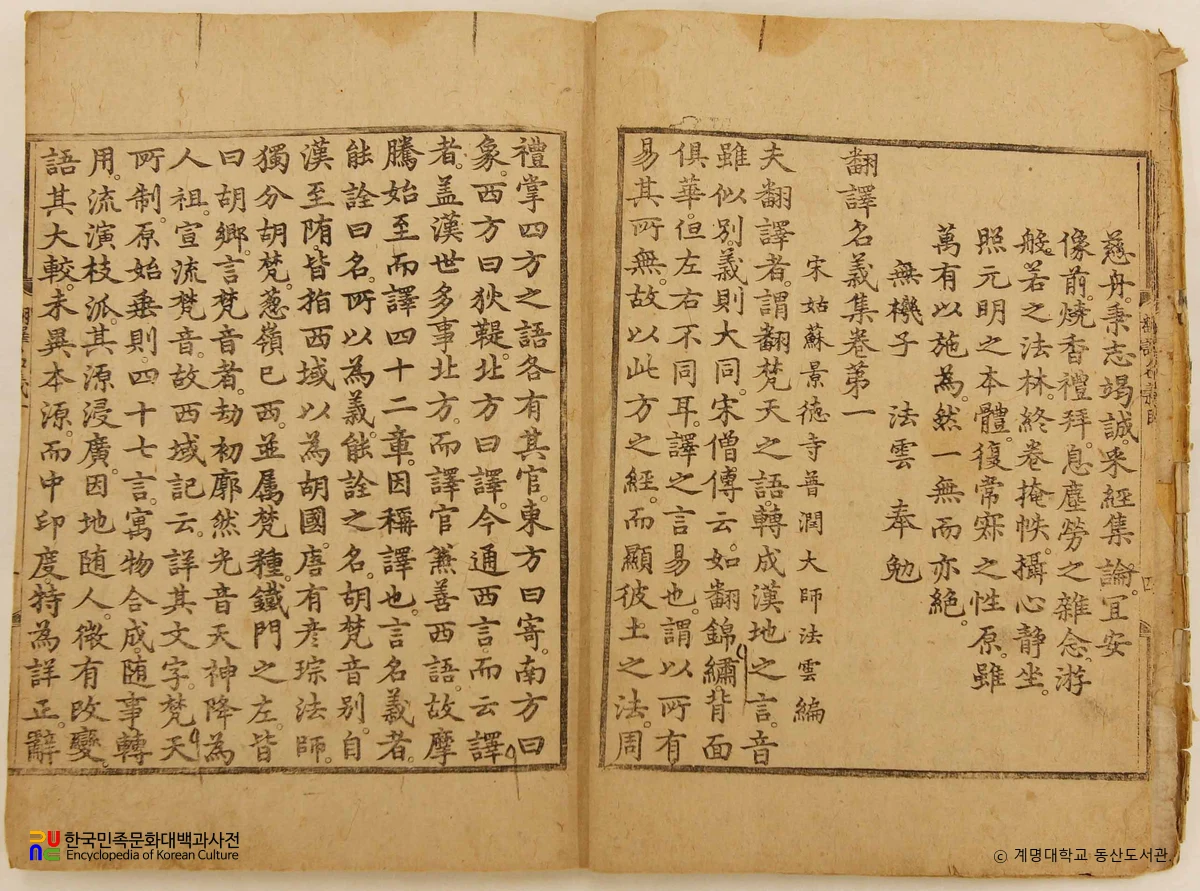 慈舟。秉志竭誠。采經集論。宜安
像前。燒香禮拜。息塵勞之雜念。游
般若之法林。終卷掩帙。攝心靜坐。
照元明之本體。復常寂之性原。雖
萬有以施為。然一無而亦絕。
無機子 法雲 奉勉
翻譯名義集卷第一
宋姑蘇景德寺普潤大師法雲編
夫翻譯者。謂翻梵天之語。轉成漢地之言。音
雖似別。義則大同。宋僧傳云。如翻錦繡。背面
俱華。但左右不同耳。譯之言易也。謂以所有
易其所無。故以此方之經。而顯彼土之法。周
禮掌四方之語各有其官。東方曰寄。南方曰
象。西方曰狄鞮。北方曰譯。今通西言。而云譯
者。盖漢世多事北方。而譯官兼善西語。故摩
騰始至而譯四十二章。因稱譯也。言名義者。
能詮曰名。所以為義。能詮之名。胡梵音別。自
漢至隋。皆指西域以為胡國。唐有彥琮法師。
獨分胡梵。葱嶺已西。並属梵種。鐵門之左。皆
曰胡鄉。言梵音者。劫初廓然光音天神降為
人祖。宣流梵音。故西域記云。詳其文字。梵天
所制。原始垂則。四十七言。寓物合成。随事轉
用。流演枝派。其源浸廣。因地随人。微有改變。
語其大較。未異本源。而中印度。特為詳正。辭
한국민족문화대백과사전
Encyclopedia of Korean Culture
ⓒ 계명대학교 동산도서관.